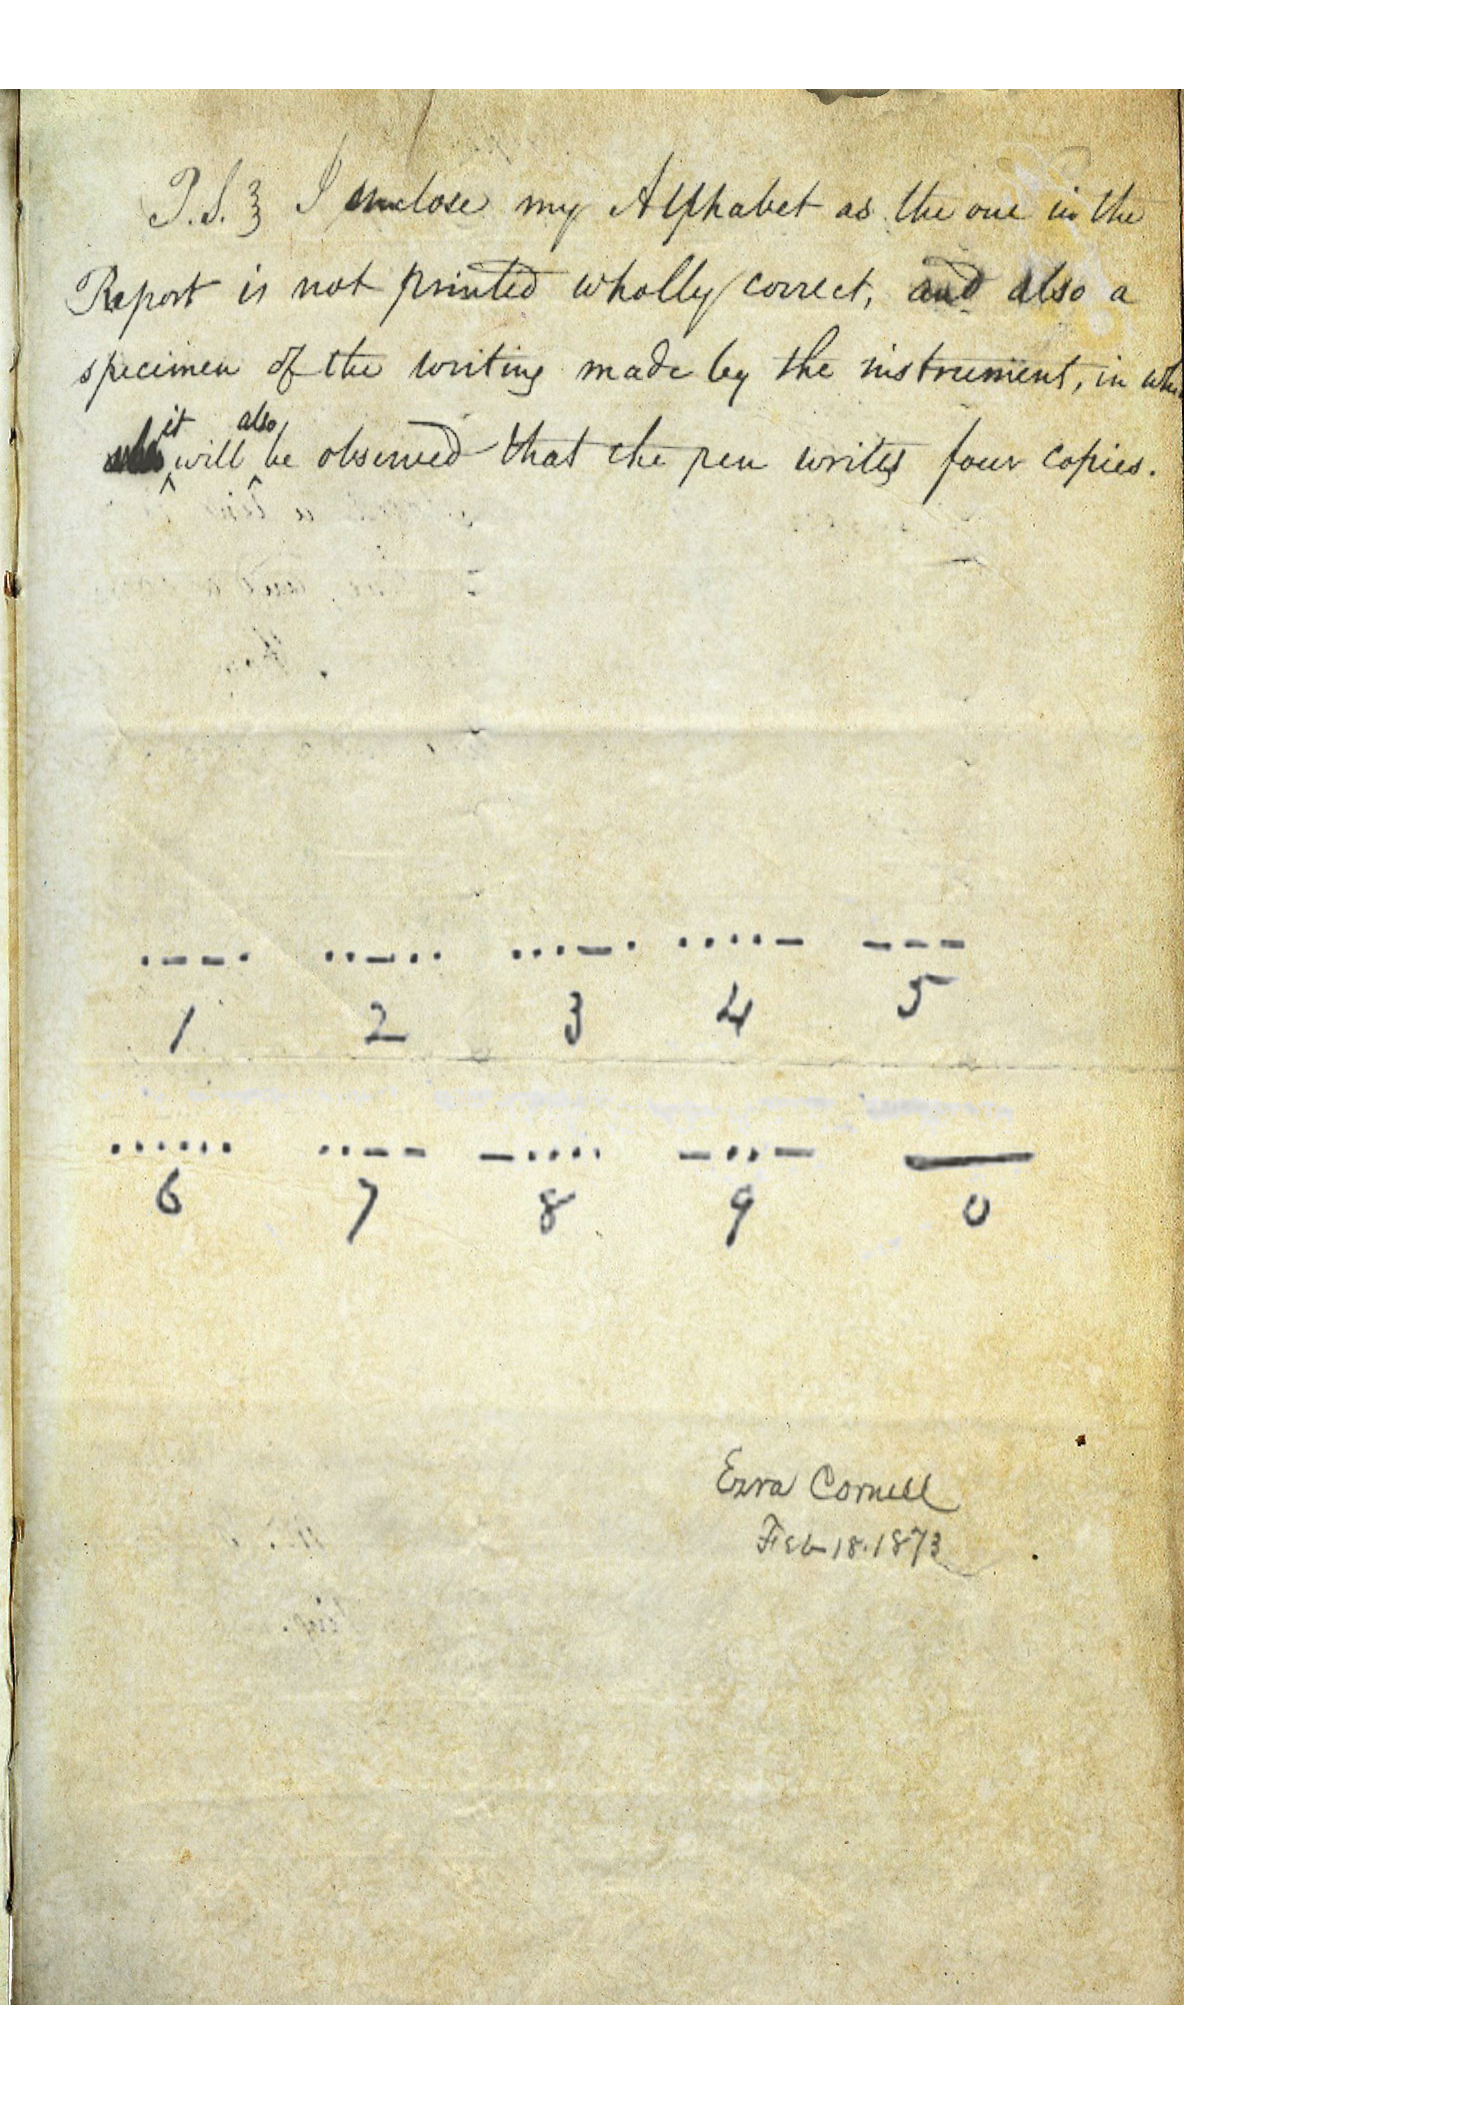 P.S. } I enclose my Alphabet as the one in the
Report is not printed wholly correct, and also a
specimen of the writing made by the instrument, in
it also
will be observed that the pen writes four copies.
. _ _ . .. _ .. ... _ . .... _ _ _ _
1 2 3 4 5
...... .. _ _ _ .... _ .. _ __
6 7 8 9 0
Ezra Cornell
Feb 18. 1873